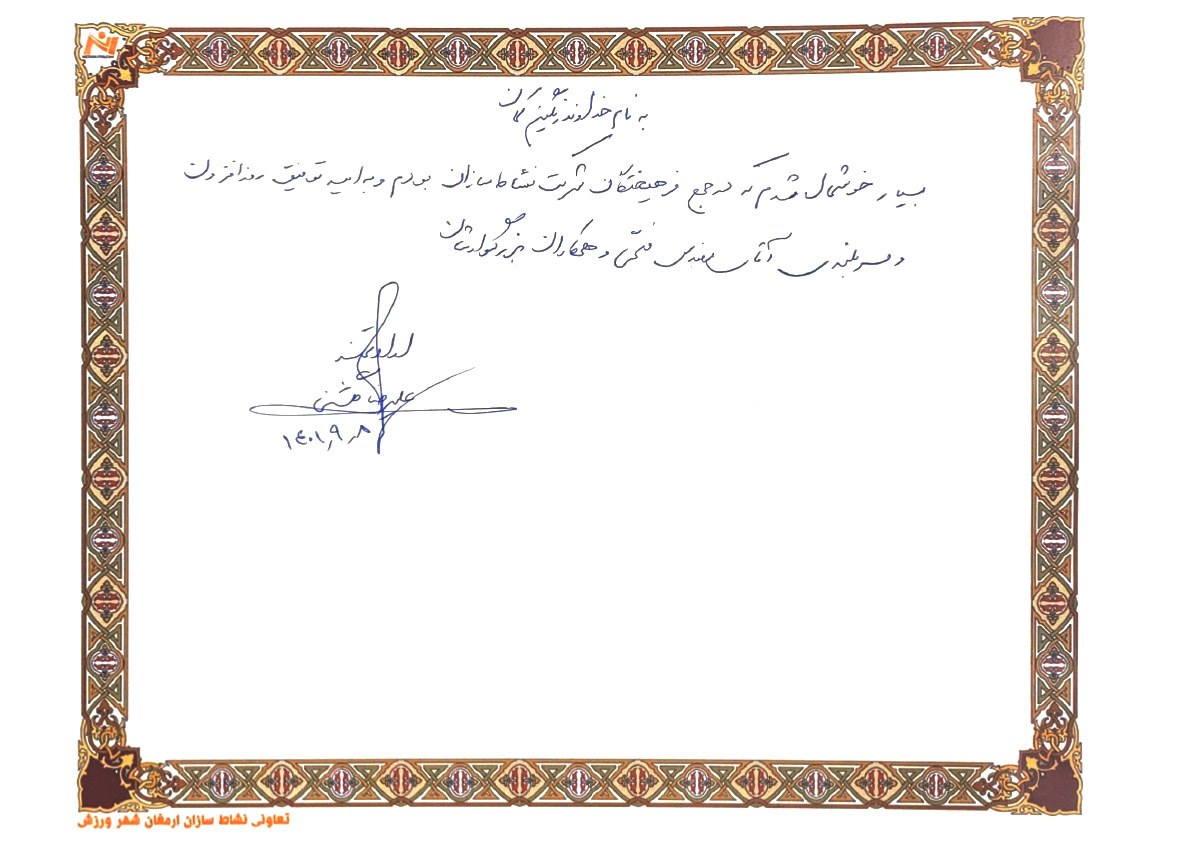 به نام خداوند رنگین کمان
بسیار خوشحال شدم که در جمع فرهیختگان شرکت نشاط سازان بودم و به امید توفیق روزافزون
و سربلندی آقای مهندس فتحی و همکاران بزرگوارشان
ارادتمند
علیرضا
۱۴۰۱٫۹٫۸
تعاونی نشاط سازان ارمغان شهر ورزش